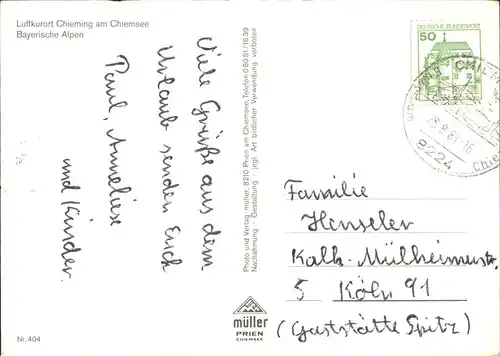 Luftkurort Chieming am Chiemsee
Bayerische Alpen
Viele Grüße aus dem
Urlaub senden Euch
Paul, Anneliese
und Kinder.
Photo und Verlag müller, 8210 Prien am Chiemsee, Telefon 0 80 51/16 39
Nachahmung - Gestaltung - jegl. Art bildlicher Verwendung verboten
DEUTSCHE BUNDESPOST
50
CHIE
8224
Familie
Hinseler
Kalk-Mülheimerstr.
5 Köln 91
(Gaststätte Spitz)
müller
PRIEN
CHIEMSEE
Nr. 404